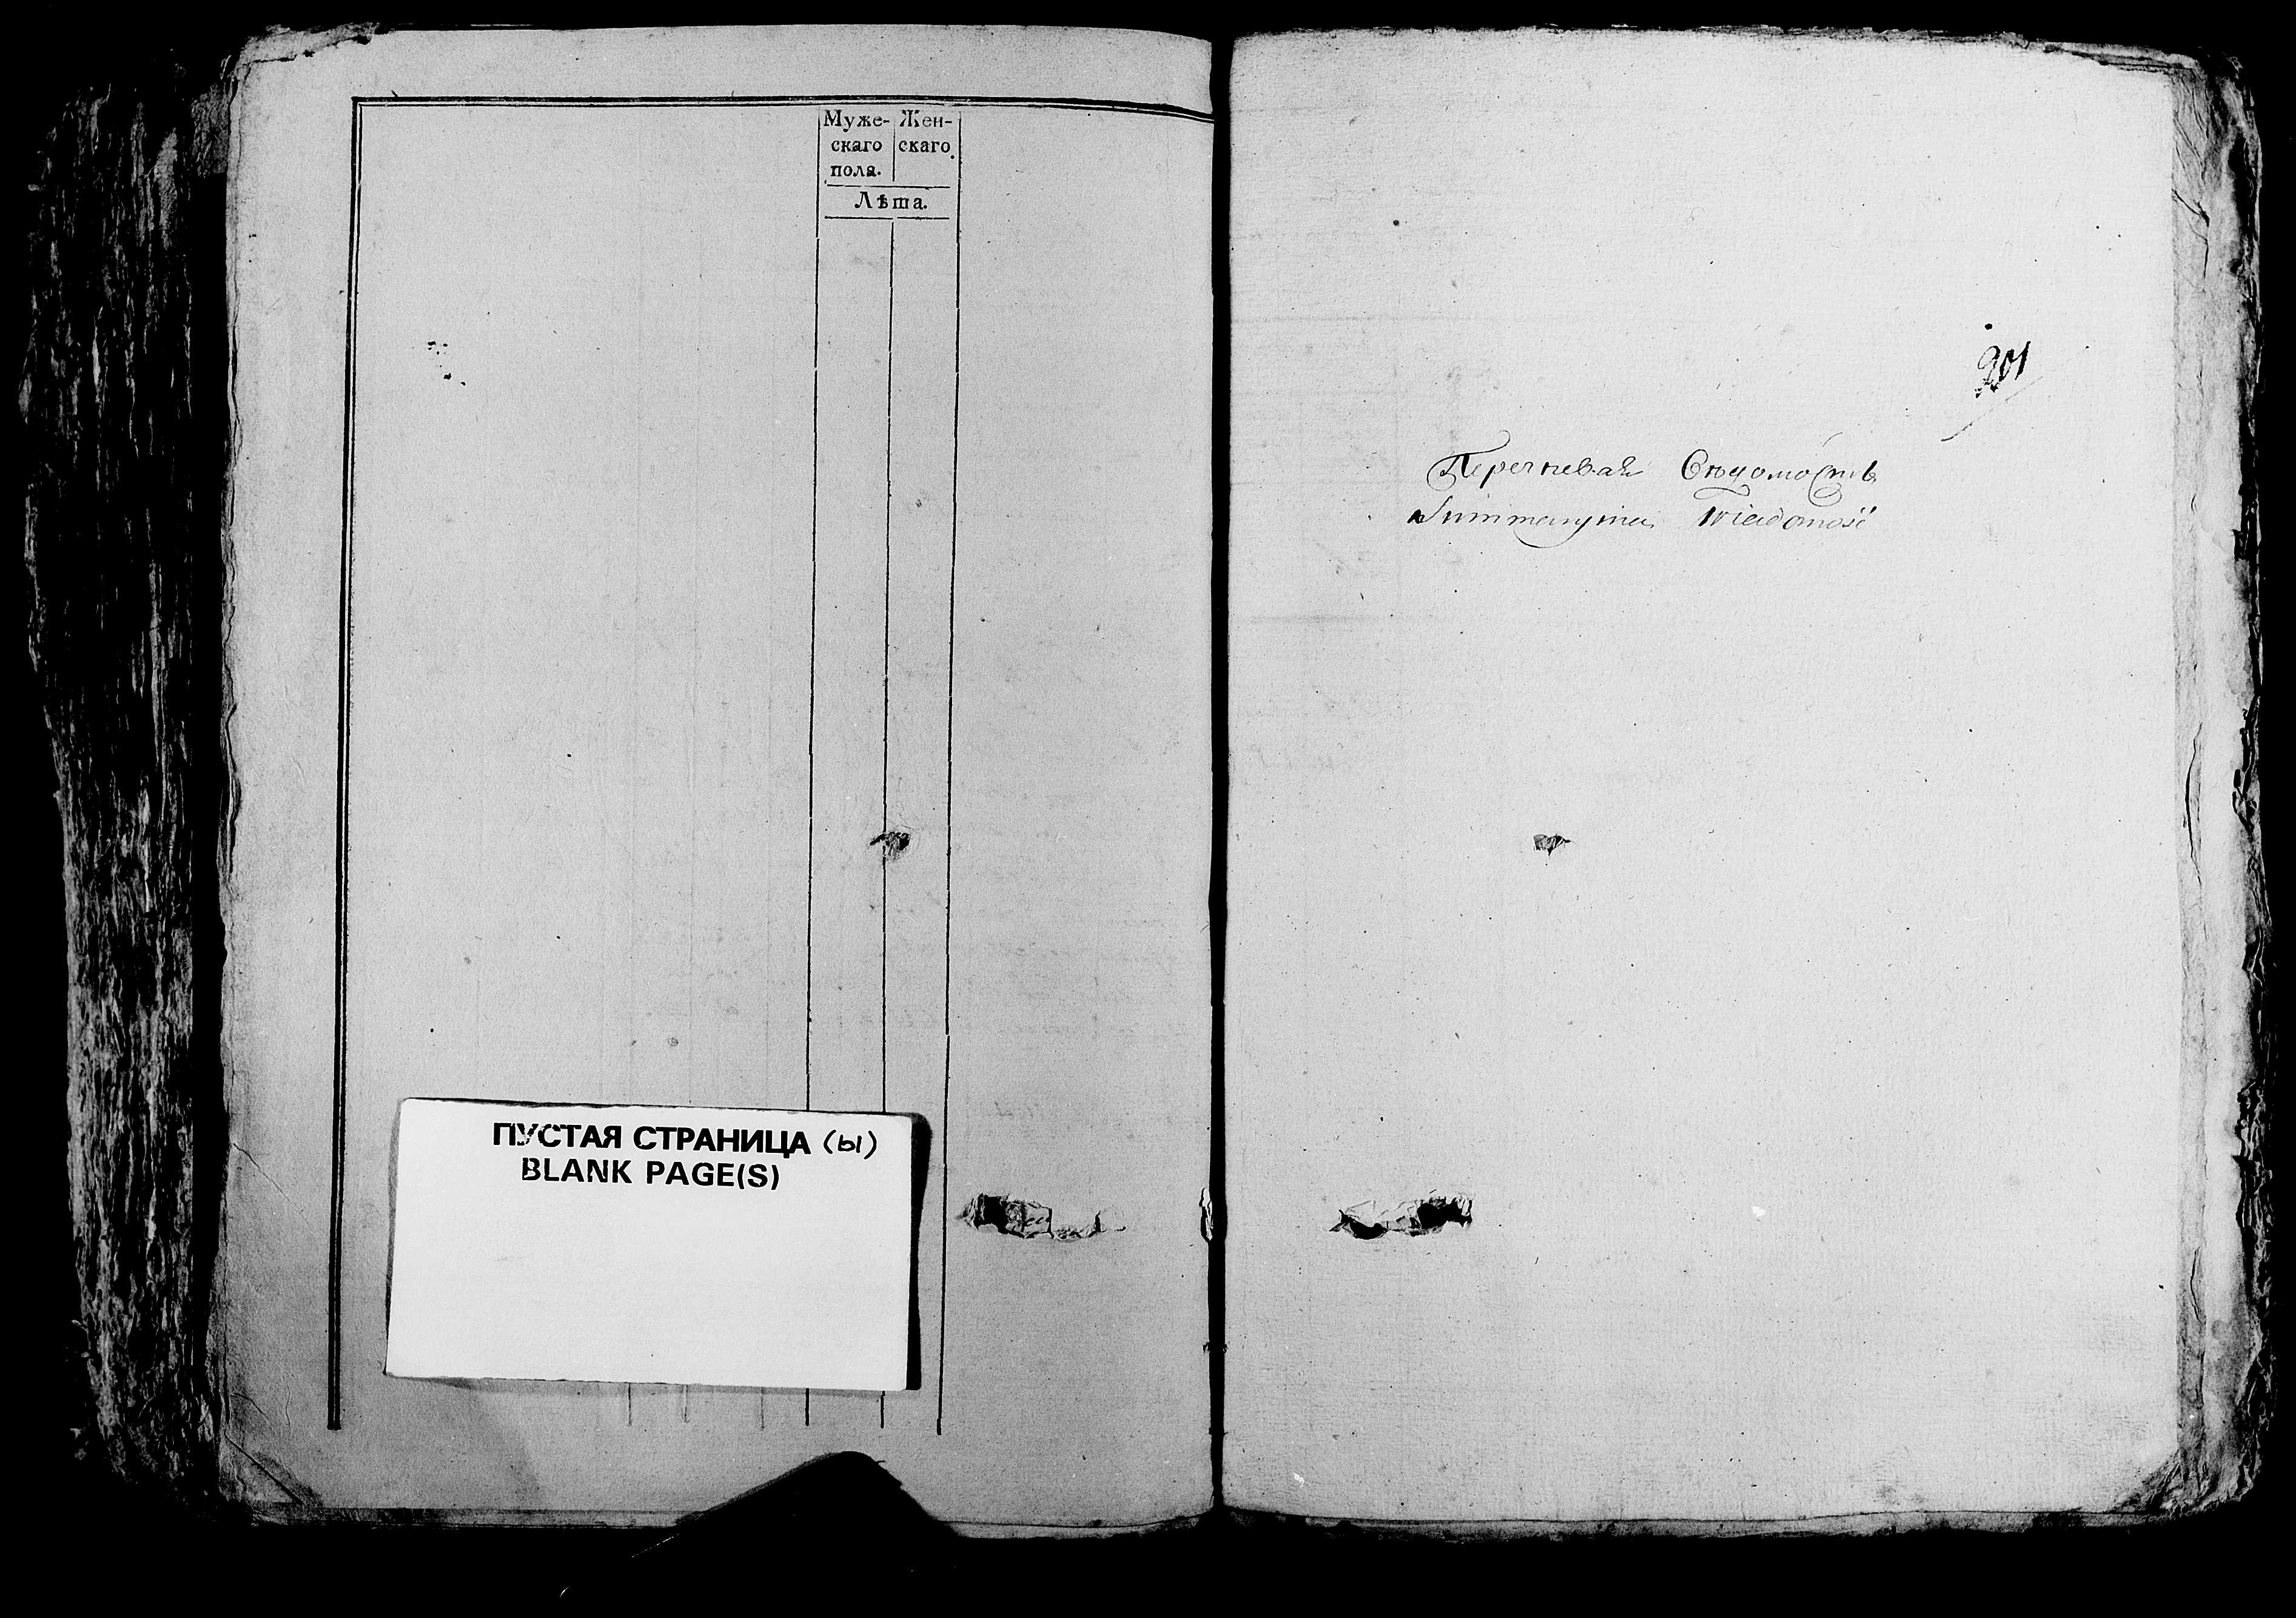 Муже- Жен-
скаго скаго.
пола.
Лѣта.
ПУСТАЯ СТРАНИЦА (ы)
BLANK PAGE(S)
201
Перечневая Вѣдомость
Summaryina Wiadomość